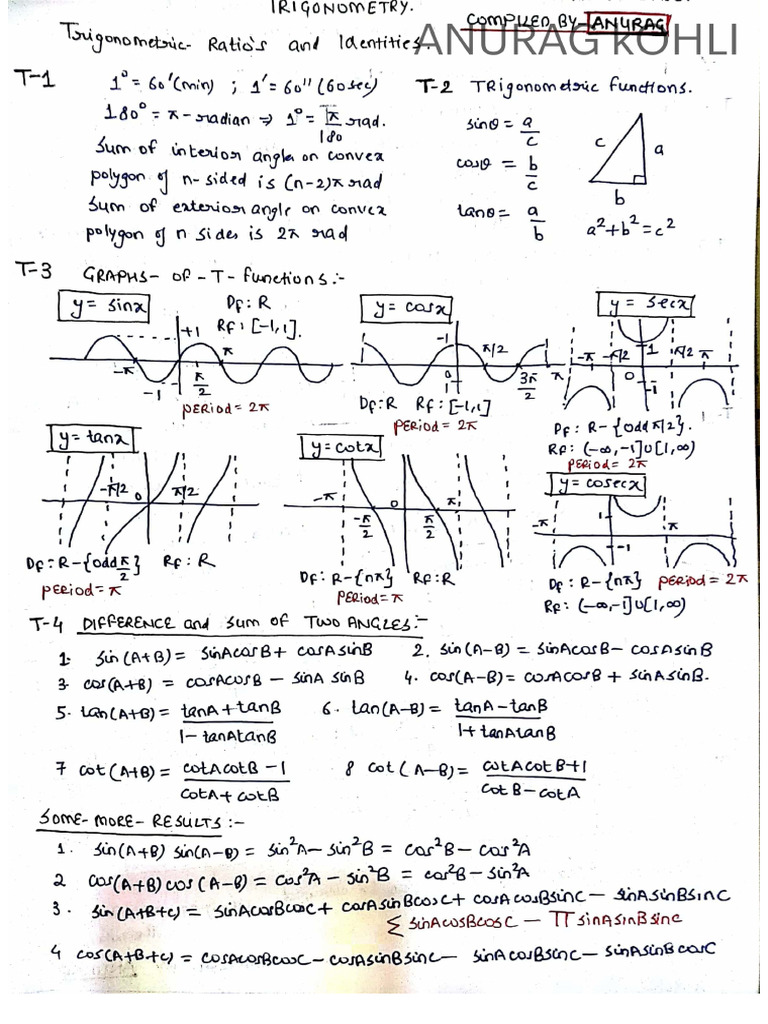 TRIGONOMETRY.
COMPILED BY- ANURAG
ANURAG KOHLI
Trigonometric- Ratio's and Identities.
T-1
1° = 60'(min) ; 1' = 60'' (60 sec)
180° = π-radian ⇒ 1° = π/180 rad.
Sum of interior angles on convex
polygon of n-sided is (n-2)π rad
Sum of exterior angle on convex
polygon of n sides is 2π rad
T-2 TRigonometric functions.
sinθ = a/c
cosθ = b/c
tanθ = a/b
c
a
b
a²+b²=c²
T-3 GRAPHS- of -T- functions:-
y = sinx
Df: R
Rf: [-1,1].
+1
-π
π
π/2
-1
PERIOD= 2π
y = cosx
-1
π/2
0
1
3π/2
π
Df: R Rf: [-1,1]
PERIOD= 2π
y = secx
-π
-π/2
1
π/2
π
0
-1
Df: R-{odd π/2}.
Rf: (-∞,-1]∪[1,∞)
PERIOD= 2π
y=tanx
-π/2
0
π/2
Df: R-{odd π/2} Rf: R
PERIOD= π
y=cotx
-π
0
π
-π/2
π/2
Df: R-{nπ} Rf: R
PERIOD= π
y= cosecx
-π
1
π
-1
Df: R-{nπ} PERIOD= 2π
Rf: (-∞,-1]∪[1,∞)
T-4 DIFFERENCE and Sum of TWO ANGLES:-
1. sin(A+B) = sinAcosB + cosAsinB
2. sin(A-B) = sinAcosB - cosAsinB
3. cos(A+B) = cosAcosB - sinA sinB
4. cos(A-B) = cosAcosB + sinAsinB.
5. tan(A+B) = tanA+tanB / 1-tanAtanB
6. tan(A-B) = tanA-tanB / 1+tanAtanB
7 cot(A+B) = cotAcotB-1 / cotA+cotB
8 cot(A-B) = cotAcotB+1 / cotB-cotA
SOME- MORE- RESULTS:-
1. sin(A+B) sin(A-B) = sin²A-sin²B = cos²B-cos²A
2 cos(A+B)cos(A-B) = cos²A-sin²B = cos²B-sin²A
3. sin(A+B+C) = sinAcosBcosC + cosAsinBcosC + cosAcosBsinC - sinAsinBsinC
Σ sinAcosBcosC - Π sinAsinBsinC
4 cos(A+B+C) = cosAcosBcosC - cosAsinBsinC - sinAcosBsinC - sinAsinBcosC